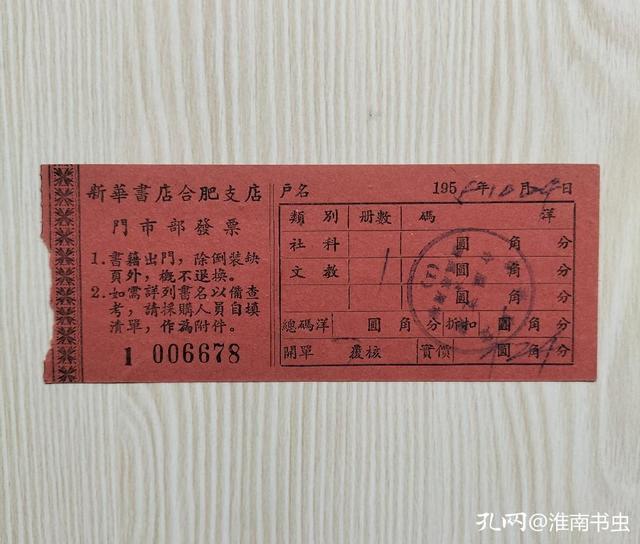 新華書店合肥支店
門市部發票
1. 書籍出門，除倒裝缺
頁外，概不退換。
2. 如需詳列書名以備查
考，請採購人員自填
清單，作為附件。
1 006678
戶名 195 年10月 日
類別 册數 碼洋
社科 圓 角 分
文教 1 圓 角 分
圓 角 分
總碼洋 圓 角 分 折扣 圓 角 分
開單 覆核 實價 圓 角 分
孔网@淮南书虫